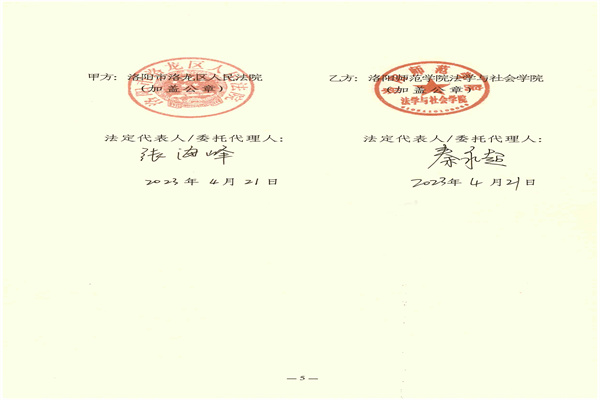 甲方：洛阳市洛龙区人民法院
（加盖公章）
洛阳市洛龙区人民法院
法定代表人/委托代理人：
张海峰
2023年4月21日
乙方：洛阳师范学院法学与社会学院
（加盖公章）
洛阳师范学院
法学与社会学院
法定代表人/委托代理人：
秦永超
2023年4月21日
—5—